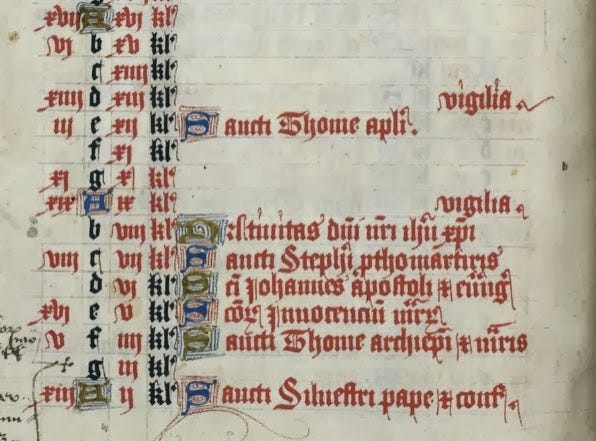 xvii A xvi kl'
vi b xv kl'
c xiiii kl'
xiiii d xiii kl' vigilia
iii e xii kl' Sancti Thome apłi.
f xi kl'
xi g x kl'
xix A ix kl' vigilia
b viii kl' Natiuitas dñi nr̃i ihũ xp̃i
viii c vii kl' Sancti Steph̃i pthomartiris
d vi kl' Sc̃i Johannes apostoli ⁊ euñg̃
xvi e v kl' Sc̃oꝝ Innocenciũ mr̃ꝝ
v f iiii kl' Sancti Thome archiep̃i ⁊ mr̃is
g iii kl'
xiii A ii kl' Sancti Siluestri pape ⁊ conf̃